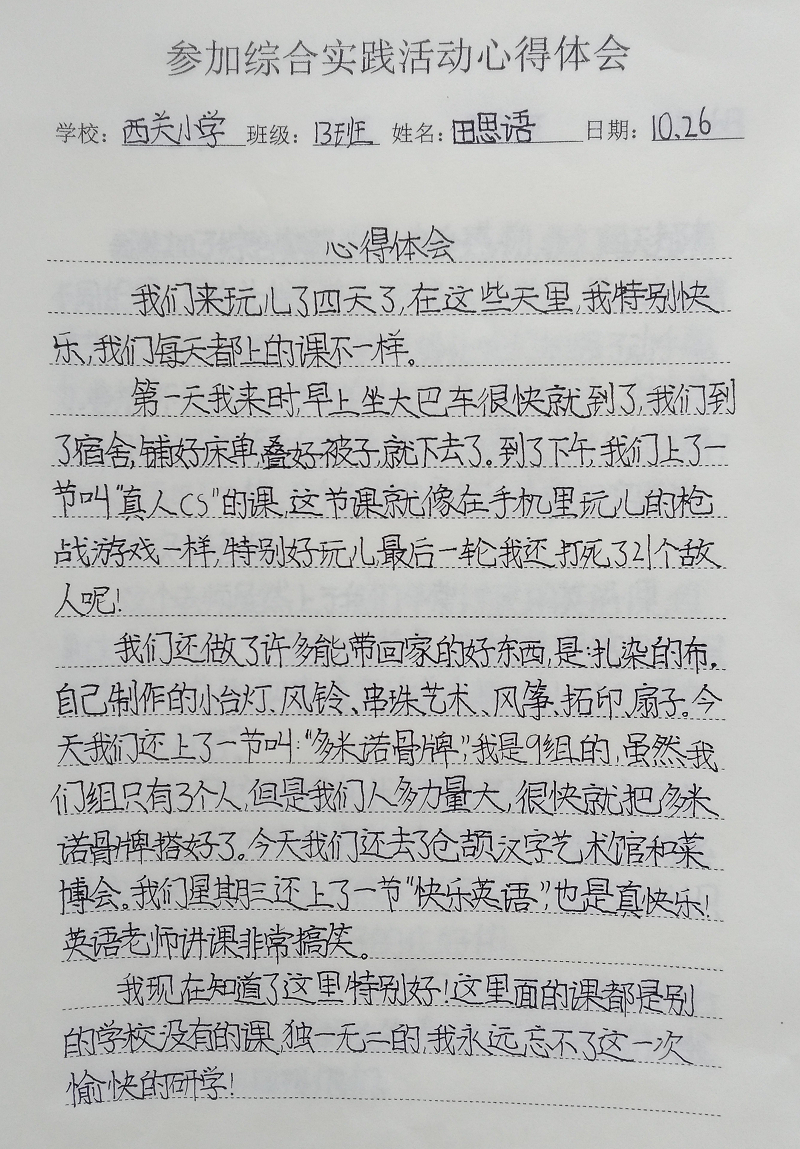 参加综合实践活动心得体会
学校：西关小学 班级：13班 姓名：田思语 日期：10.26
心得体会
我们来玩儿了四天了，在这些天里，我特别快
乐，我们每天都上的课不一样。
第一天我来时，早上坐大巴车很快就到了，我们到
了宿舍，铺好床单，叠好被子，就下去了。到了下午，我们上了一
节叫“真人CS”的课，这节课就像在手机里玩儿的枪
战游戏一样，特别好玩儿，最后一轮我还打死了21个敌
人呢！
我们还做了许多能带回家的好东西，是：扎染的布，
自己制作的小台灯、风铃、串珠艺术、风筝、拓印、扇子。今
天我们还上了一节叫：“多米诺骨牌”，我是9组的，虽然我
们组只有3个人，但是我们人多力量大，很快就把多米
诺骨牌搭好了。今天我们还去了仓颉汉字艺术馆和菜
博会。我们星期三还上了一节“快乐英语”，也是真快乐！
英语老师讲课非常搞笑。
我现在知道了这里特别好！这里面的课都是别
的学校没有的课，独一无二的，我永远忘不了这一次
愉快的研学！